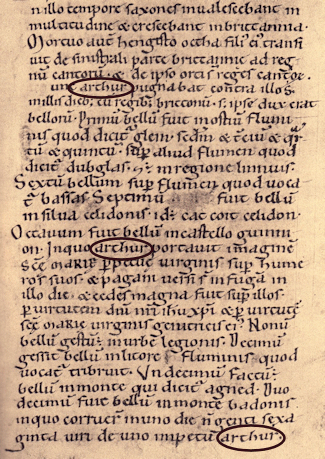 n illo tempore saxones inualescebant in
multitudine & crescebant in brittannia.
Mortuo aut̄ hengisto octha fili' ei' transi
uit de sinistrali parte brittannie ad reg
nū cantorū. & de ipso orti s̄ reges cantor̄.
unc arthur pugnabat contra illos.
in illis dieb; cū regib; brittonū. s; ipse dux erat
bellorū. Primū bellū fuit in ostiū flumi
nis quod dicit̄ glein. sed̄m & t̄ciū & qr̄
tū & quintū. sup̄ aliud flumen quod
dicit̄ dubglas. & ē in regione linnuis.
Sextū bellum sup̄ flumen quod uoca
t̄ bassas. Septimū fuit bellū
in silua celidonis. id ē cat coit celidon.
Octauum fuit bellū in castello guinni
on. In quo arthur portauit imaginē
sc̄e mariē p̄petue uirginis sup̄ hume
ros suos. & pagani uersi s̄ in fugā in
illo die. & cedes magna fuit sup̄ illos.
p̄ uirtutem dn̄i nr̄i ih̄u xp̄i & p̄ uirtutē
sc̄ē mariē uirginis genitricis ei'. Nonū
bellū gestū ē in urbe legionis. Decimū
gessit bellū in litore fluminis quod
uocat̄ tribruit. Undecimū factū ē
bellū in monte qui dicit̄ agned. Duo
decimū fuit bellū in monte badonis.
in quo corruer̄ in uno die n̄genti sexa
ginta uiri de uno impetu arthur.